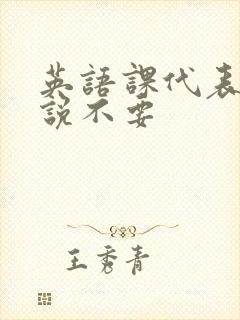 英語課代表
說不要
王秀青